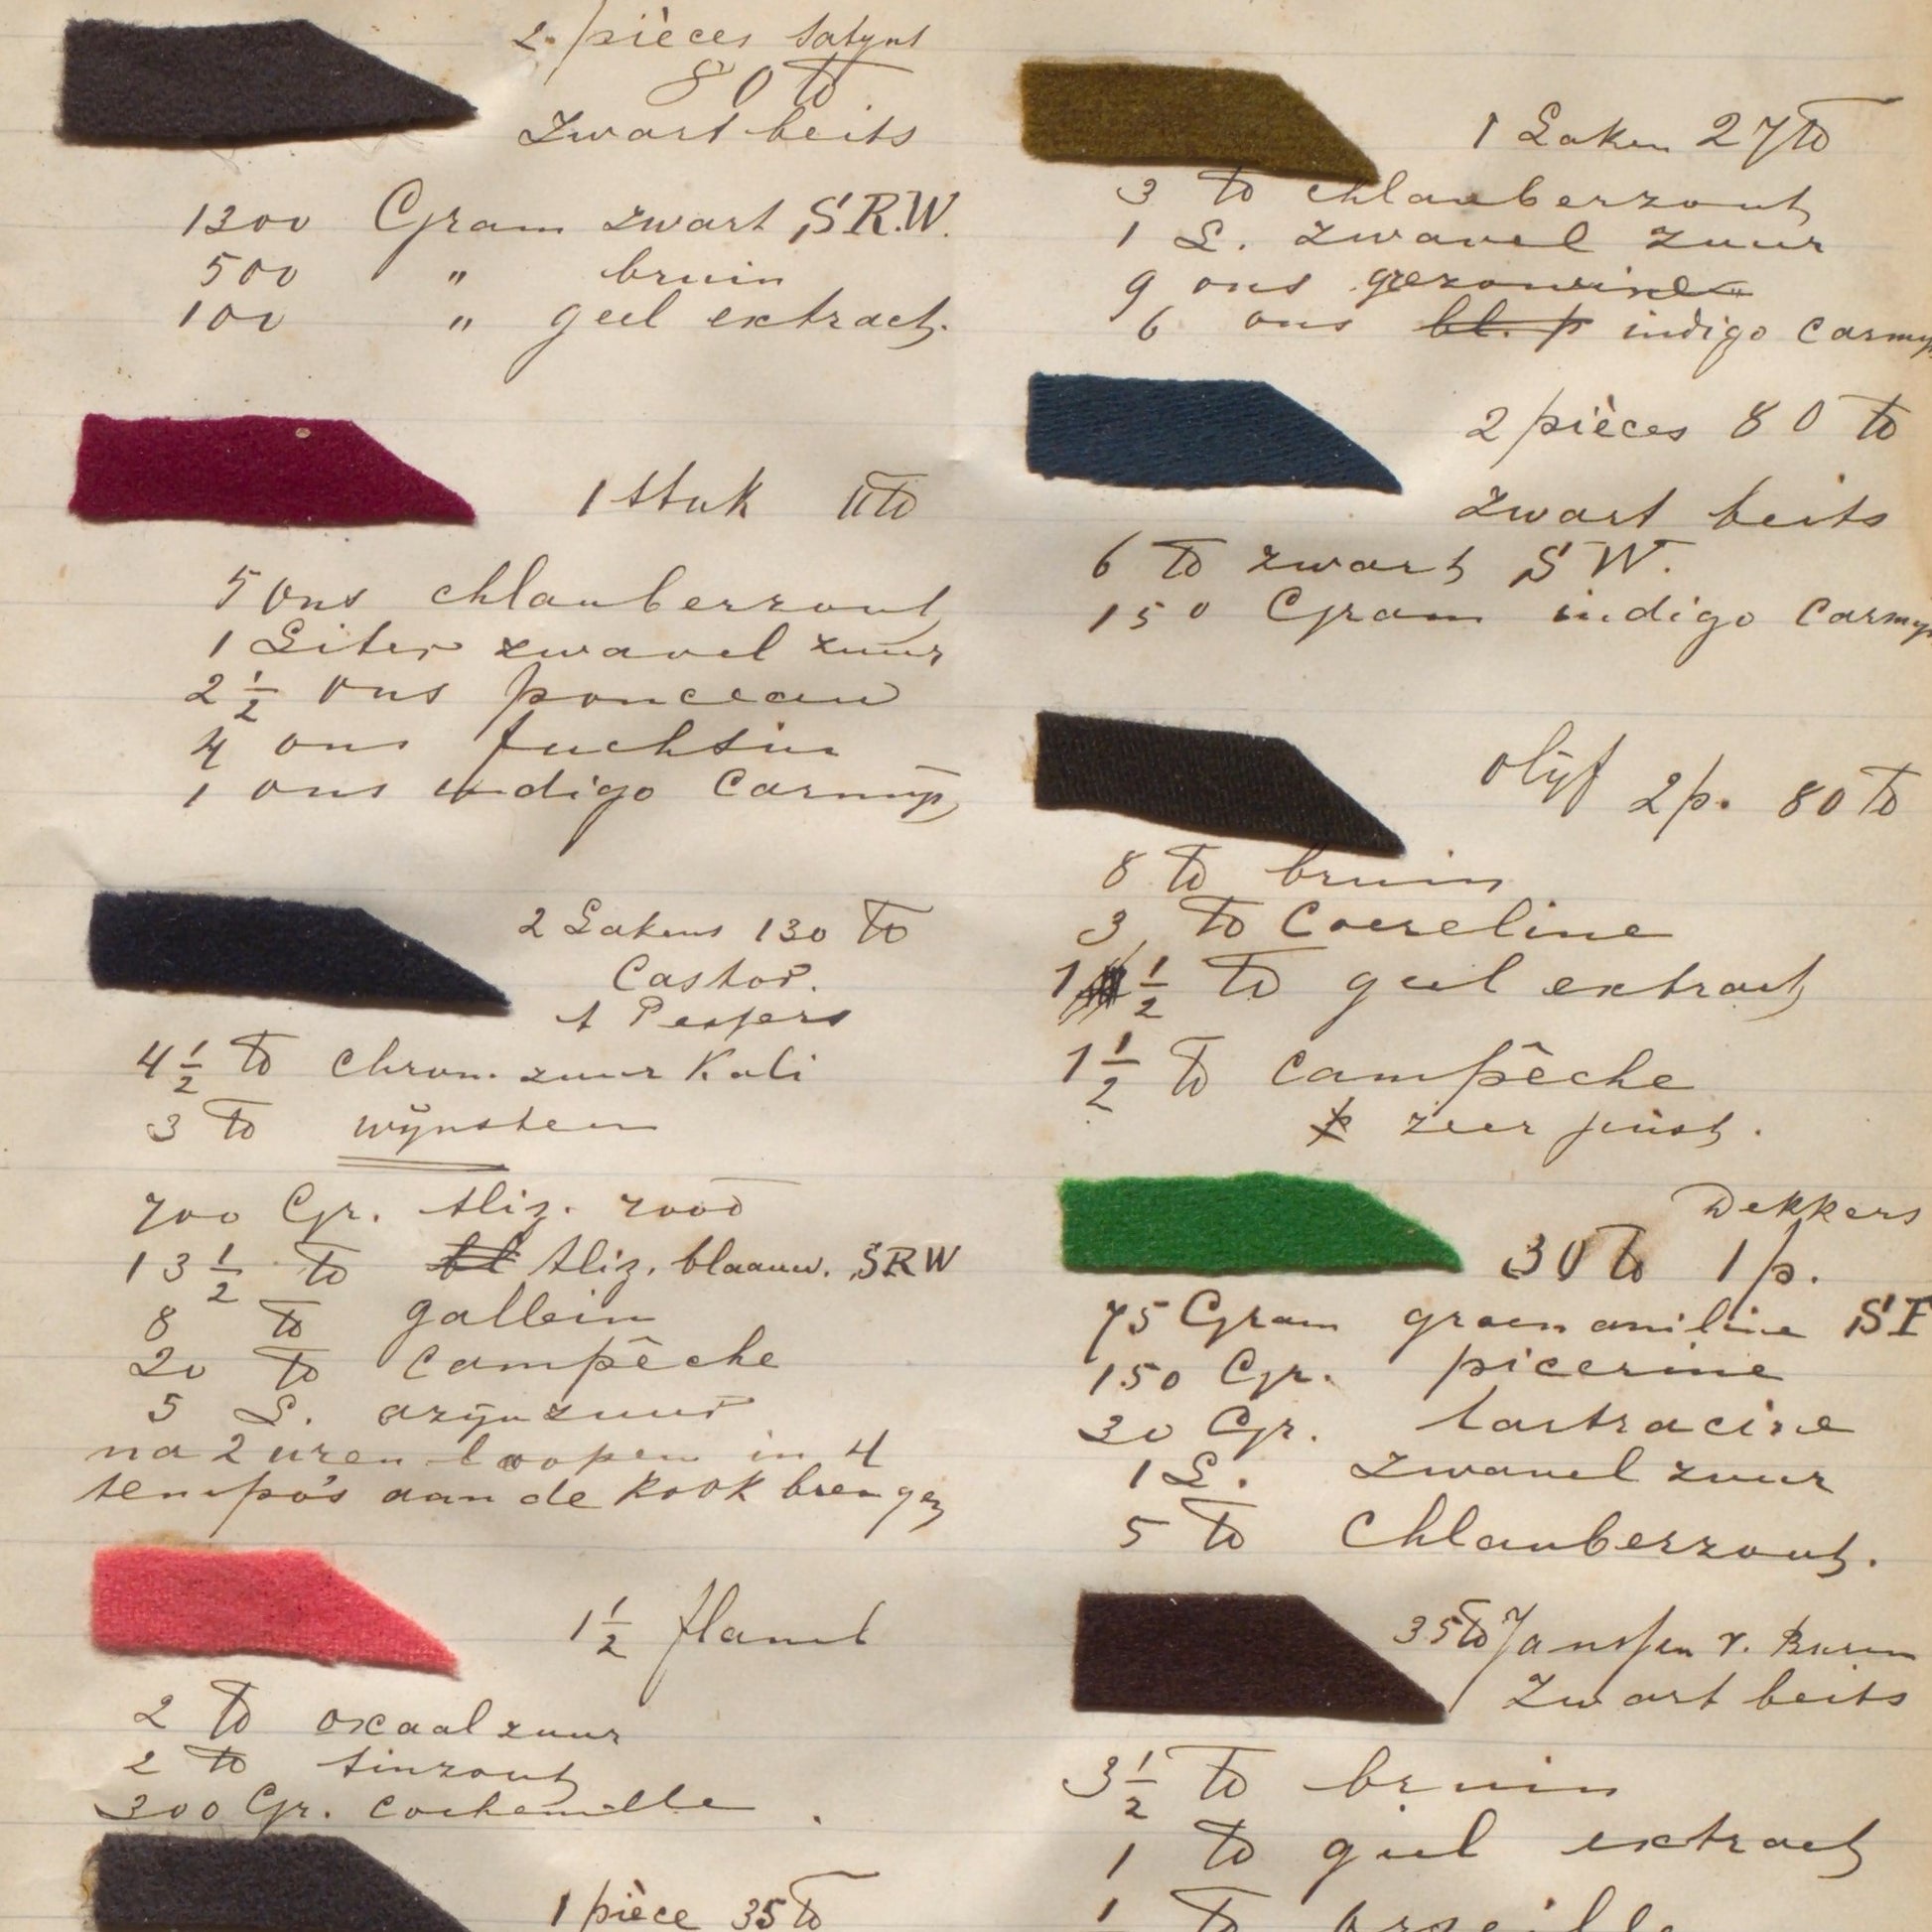 2 pièces satynt
80 ℔
Zwart beits
1300 Gram zwart S.R.W.
500 " bruin
100 " geel extract.
1 stuk 11 ℔
5 ons chlauberzout
1 Liter zwavel zuur
2 1/2 ons ponceau
4 ons fuchsin
1 ons indigo Carmijn
2 Lakens 130 ℔
Castor.
4 1/2 ℔ Chrom. zuur Kali
3 ℔ wijnsteen
700 Gr. Aliz. rood
13 1/2 ℔ Aliz. blaauw. SRW
8 ℔ gallein
20 ℔ Campêche
5 L. azijnzuur
na 2 uren loopen in 4
tempo's aan de kook brengen
1 1/2 flanel
2 ℔ oxaalzuur
2 ℔ tinzout
300 Gr. Cochenille
1 pièce 35 ℔
1 Laken 27 ℔
3 ℔ chlauberzout
1 L. zwavel zuur
9 ons
6 ons bl. p indigo Carmij
2 pièces 80 ℔
zwart beits
6 ℔ zwart S W.
150 Gram indigo Carmij
olijf 2 p. 80 ℔
8 ℔ bruin
3 ℔ Coereline
1 1/2 ℔ geel extract
1 1/2 ℔ Campêche
zeer juist.
Dekkers
30 ℔ 1 p.
75 Gram groen aniline SF
150 Gr. picerine
30 Gr. tartracine
1 L. zwavel zuur
5 ℔ Chlauberzout.
35 ℔ Janssen v. Buren
Zwart beits
3 1/2 ℔ bruin
1 ℔ geel extract
1 ℔ orseille